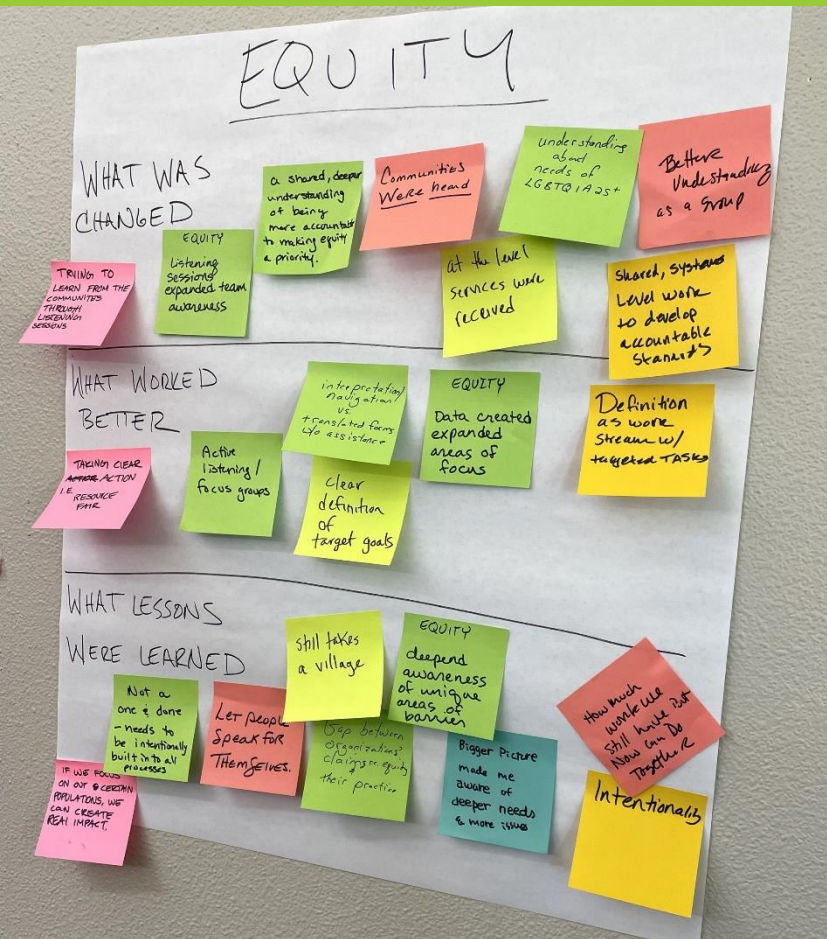 EQUITY
WHAT WAS
CHANGED
TRYING TO
LEARN FROM THE
COMMUNITIES
THROUGH
LISTENING
SESSIONS
EQUITY
Listening
sessions
expanded team
awareness
a shared, deeper
understanding
of being
more accountable
to making equity
a priority.
Communities
Were heard
understanding
about
needs of
LGBTQIA2S+
Better
Understanding
as a group
at the level
services were
received
Shared, systems
Level work
to develop
accountable
Standards
WHAT WORKED
BETTER
TAKING CLEAR
ACTION
I.E. RESOURCE
FAIR
Active
listening/
focus groups
interpretation/
navigation
vs.
translated forms
w/o assistance
Clear
definition
of
target goals
EQUITY
Data created
expanded
areas of
focus
Definition
as work
stream w/
targeted TASKS
WHAT LESSONS
WERE LEARNED
IF WE FOCUS
ON CERTAIN
POPULATIONS, WE
CAN CREATE
REAL IMPACT.
Not a
one & done
- needs to
be intentionally
built into all
processes
LET PEOPLE
SPEAK FOR
THEMSELVES.
still takes
a village
Gap between
organizations'
claims re equity
& their practice
EQUITY
deepend
awareness
of unique
areas of
barrier
Bigger Picture
made me
aware of
deeper needs
& more issues
How much
work we
still have But
Now can Do
Together
Intentionality